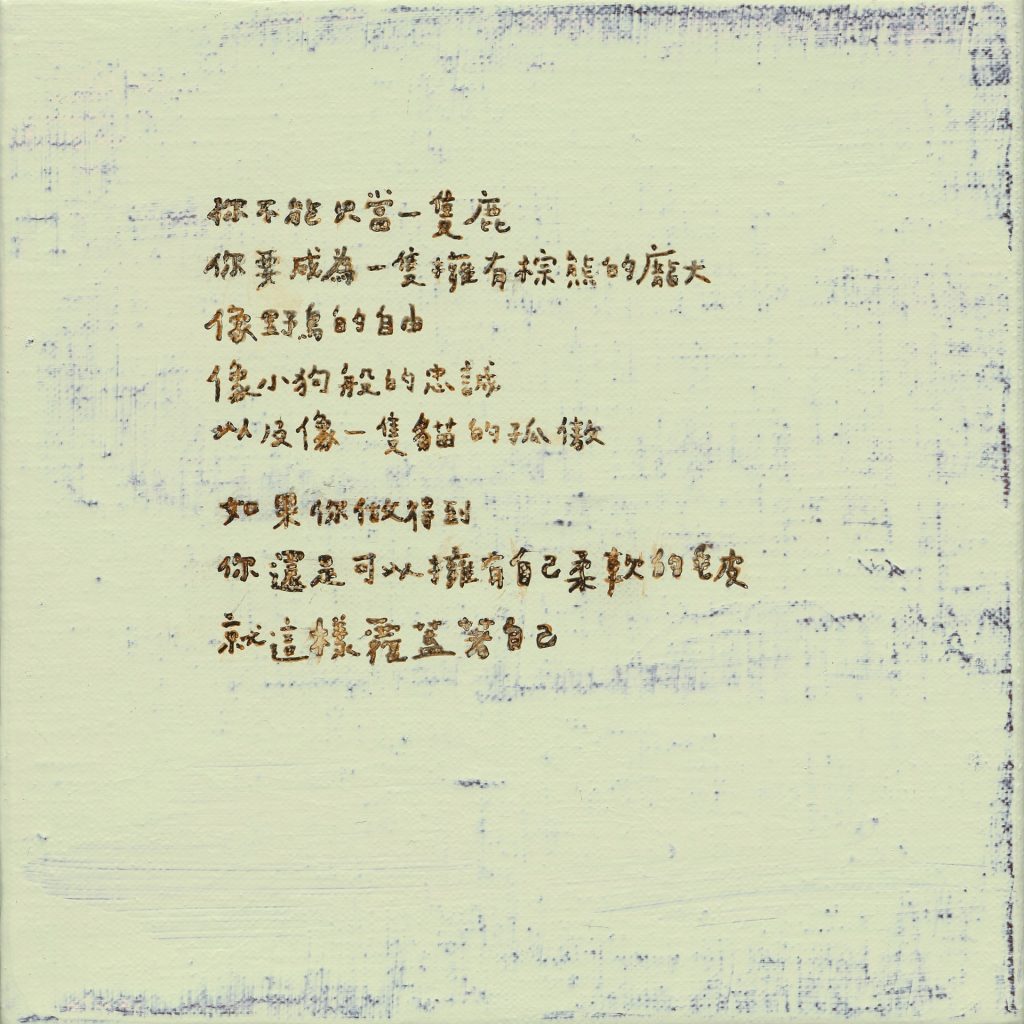 你不能只當一隻鹿
你要成為一隻擁有棕熊的龐大
像野鳥的自由
像小狗般的忠誠
以及像一隻貓的孤傲
如果你做得到
你還是可以擁有自己柔軟的毛皮
就這樣覆蓋著自己